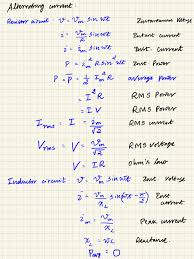 Alternating current
Resistor circuit - v = vm sin wt Instantaneous Voltage
i = vm/R sin wt Instant current
p = im² R sin² wt Inst. Power
P = p̄ = 1/2 im² R average Power
= I² R RMS Power
= IV RMS Power
Irms = I = im/√2 RMS current
Vrms = V = vm/√2 RMS voltage
V = IR ohm's law
Inductor circuit - v = vm sin wt Inst Voltage
i = vm/xL sin(wt - π/2) Inst current
im = vm/xL Peak current
xL = wL Reactance.
Pavg = 0